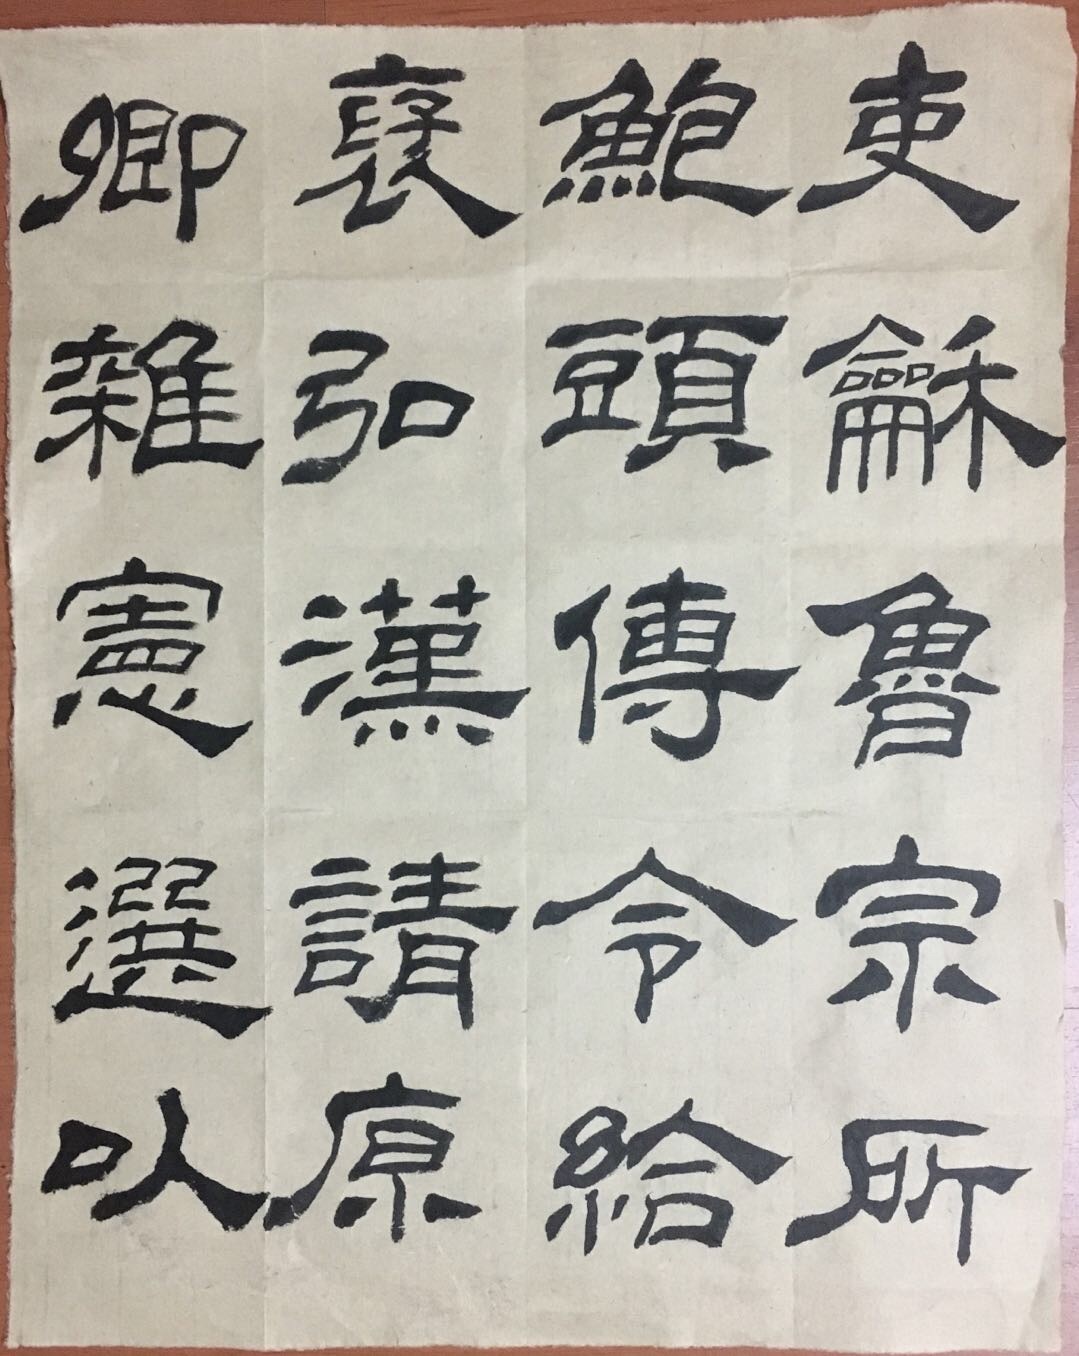 吏龢魯宗所
鮑頭傳令給
褒弘漢請原
卿雜憲選以